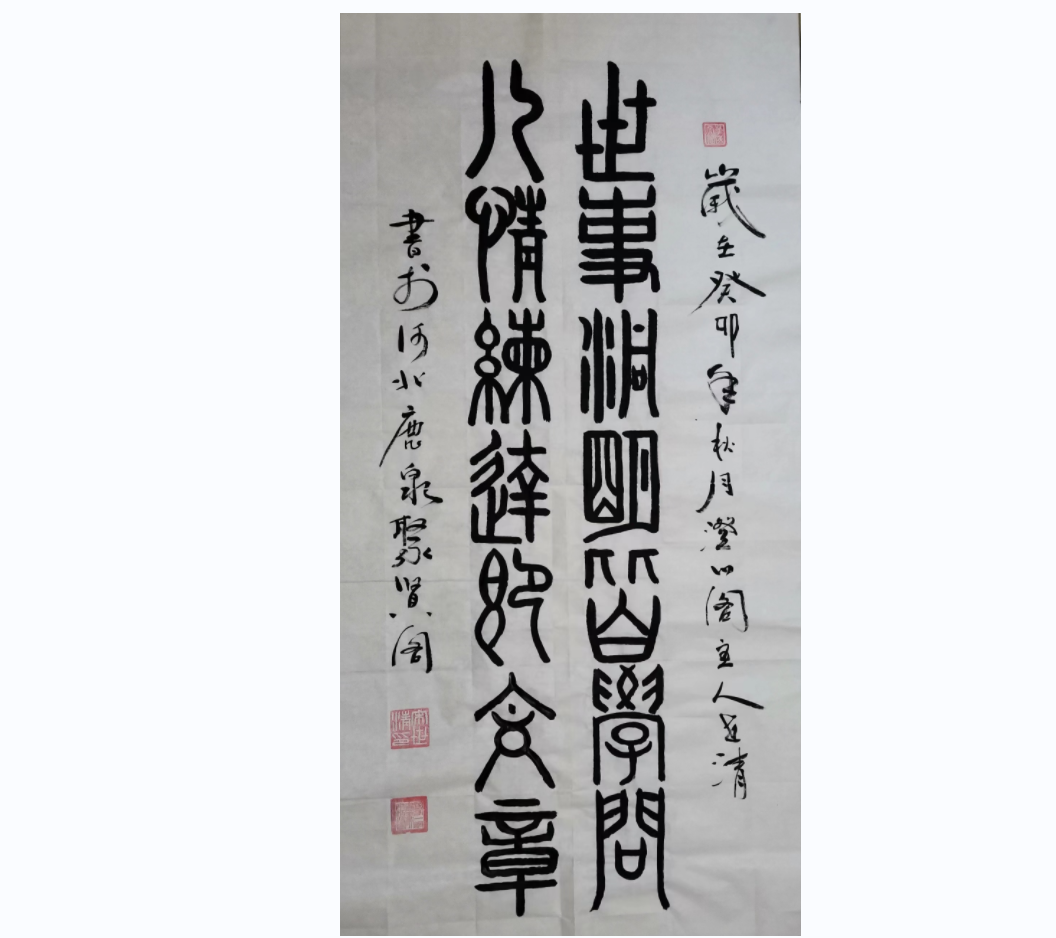 歲在癸卯年秋月澄心阁主人世清
世事洞明皆學問
人情練達即文章
書於河北鹿泉聚贤阁